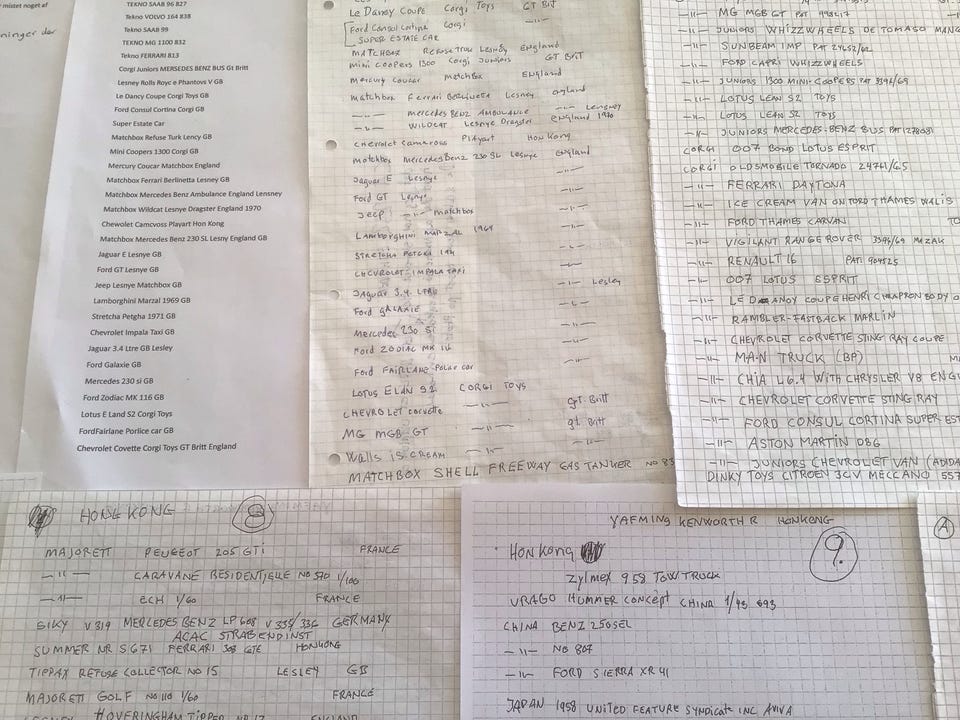 mistet noget af
ninger der
TEKNO SAAB 96 827
Tekno VOLVO 164 838
Tekno SAAB 99
TEKNO MG 1100 832
Tekno FERRARI 813
Corgi Juniors MERSEDES BENZ BUS Gt Britt
Lesney Rolls Royc e Phantovs V GB
Le Dancy Coupe Corgi Toys GB
Ford Consul Cortina Corgi GB
Super Estate Car
Matchbox Refuse Turk Lency GB
Mini Coopers 1300 Corgi GB
Mercury Coucar Matchbox England
Matchbox Ferrari Berlinetta Lesney GB
Matchbox Mercedes Benz Ambulance England Lensney
Matchbox Wildcat Lesnye Dragster England 1970
Chewolet Camcvoss Playart Hon Kong
Matchbox Mercedes Benz 230 SL Lesny England GB
Jaguar E Lesnye GB
Ford GT Lesnye GB
Jeep Lesnye Matchbox GB
Lamborghini Marzal 1969 GB
Stretcha Petgha 1971 GB
Chevrolet Impala Taxi GB
Jaguar 3.4 Ltre GB Lesley
Ford Galaxie GB
Mercedes 230 si GB
Ford Zodiac MK 116 GB
Lotus E Land S2 Corgi Toys
FordFairlane Porlice car GB
Chevrolet Covette Corgi Toys GT Britt England
Le Dandy Coupe Corgi Toys GT BIT
Ford Consul Cortina Corgi
SUPER ESTATE CAR
MATCHBOX Refuse truck Lesney England
mini Coopers 1300 Corgi Juniors GT Brit
Mercury Coucar matchbox England
matchbox Ferrari Berlineta Lesney England
-"- mercedes Benz AMBULANCE -"- Lensney
-"- WILDCAT Lesnye Dragster England 1970
chevrolet camaross Playart Hon Kong
matchbox mercedes Benz 230 SL Lesnye England
Jaguar E Lesnye -"-
Ford GT Lesnye -"-
Jeep -"- matchbox -"-
LAMborghini MARZAL 1969 -"-
CHEVROLET IMPALA TAXI -"-
Jaguar 3.4 -"- Lesley
Ford GALAXIE -"-
Mercedes 230 SI
Ford ZODIAC MK -"-
Ford FAIRLANE Police car -"-
LOTUS ELAN S2 CORGI TOYS
CHEVROLET corvette -"- gt. Britt
MG MGB GT -"- gt. Britt
Walls IS CREAM -"-
MATCHBOX SHELL FREEWAY GAS TANKER NO 83
-"- MG MGB GT PAT
-"- JUNIORS WHIZZWHEELS DE TOMASO MANG
-"- SUNBEAM IMP PAT
-"- FORD CAPRI WHIZZWHEELS
-"- JUNIORS 1300 MINI COOPERS PAT 3396/69
-"- LOTUS LEAN S2 TOYS
-"- LOTUS LEAN S2 TOYS
-"- JUNIORS MERCEDES-BENZ BUS PAT
CORGI 007 BOND LOTUS ESPRIT
CORGI OLDSMOBILE TORNADO 24761/65
-"- FERRARI DAYTONA
-"- ICE CREAM VAN ON FORD THAMES WALIS
-"- FORD THAMES CARVAN
-"- VIGILANT RANGE ROVER 3396/69 MAZAK
-"- RENAULT 16 PAT
-"- 007 LOTUS ESPRIT
-"- LE DANOY COUPE HENRI CHAPRON BODY
-"- RAMBLER-FASTBACK MARLIN
-"- CHEVROLET CORVETTE STING RAY COUPE
-"- MAN TRUCK (BP)
-"- CHIA L6.4 WITH CHRYSLER V8 ENG
-"- CHEVROLET CORVETTE STING RAY
-"- FORD CONSUL CORTINA SUPER EST
-"- ASTON MARTIN DB6
-"- JUNIORS CHEVROLET VAN (ADIDA
DINKY TOYS CITROEN 3CV MECCANO 557
HONG KONG 8
MAJORETT PEUGEOT 205 GTI FRANCE
-"- CARAVANE RESIDENTIELLE NO 510 1/100
-"- ECH 1/60 FRANCE
SIKY V 319 MERCEDES BENZ LP 608 V 335/336 GERMANY
ACAC STRABENDINST
SUMMER NR S 671 FERRARI 308 GTE HONKONG
TIPPAX REFUSE COLLECTOR NO 15 LESLEY GB
MAJORETT GOLF NO 110 1/60 FRANCE
HOVERINGHAM TIPPER NO 17 ENGLAND
YAFMING KENWORTH R HONKONG
HON KONG 9.
Zylmex 958 TOW TRUCK
VRAGO HUMMER CONCEPT CHINA 1/43 693
CHINA BENZ 250SEL
-"- NO 807
-"- FORD SIERRA XR 4I
JAPAN 1958 UNITED FEATURE SYNDICATE INC AVIVA
A